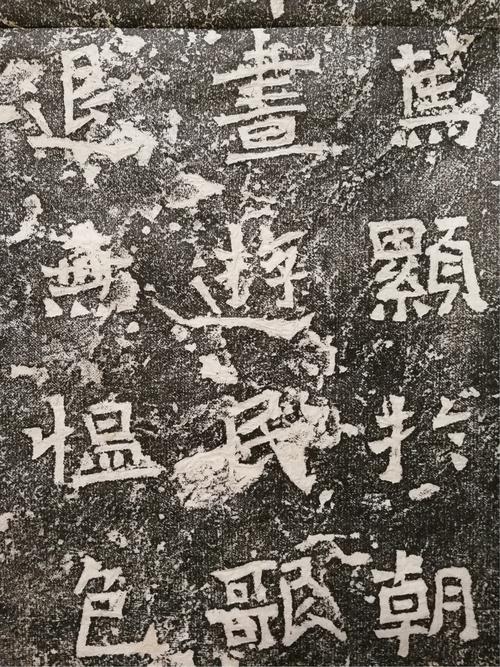 篤顯扵朝
晝遊民歌
退無愠色